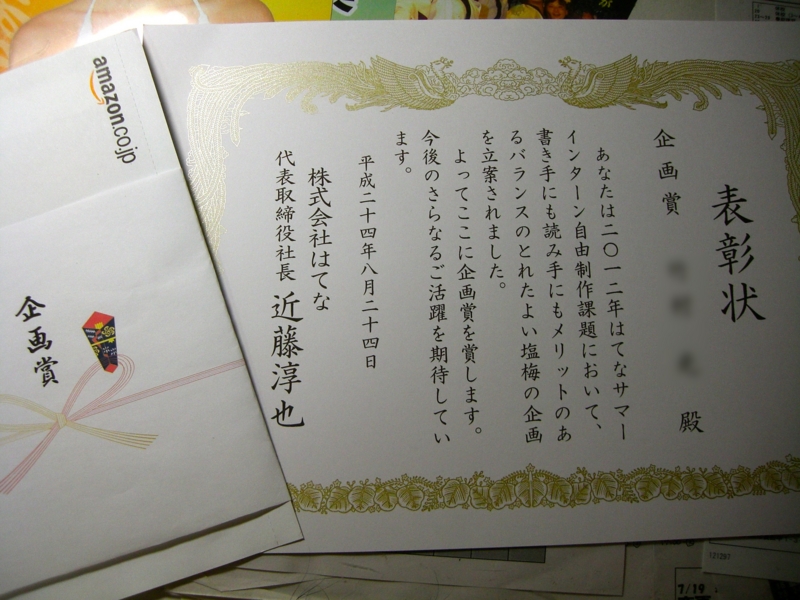 表彰状
企画賞
殿
あなたは二〇一二年はてなサマー
インターン自由制作課題において、
書き手にも読み手にもメリットのあ
るバランスのとれたよい塩梅の企画
を立案されました。
よってここに企画賞を賞します。
今後のさらなるご活躍を期待してい
ます。
平成二十四年八月二十四日
株式会社はてな
代表取締役社長 近藤淳也
amazon.co.jp
企画賞
7/19